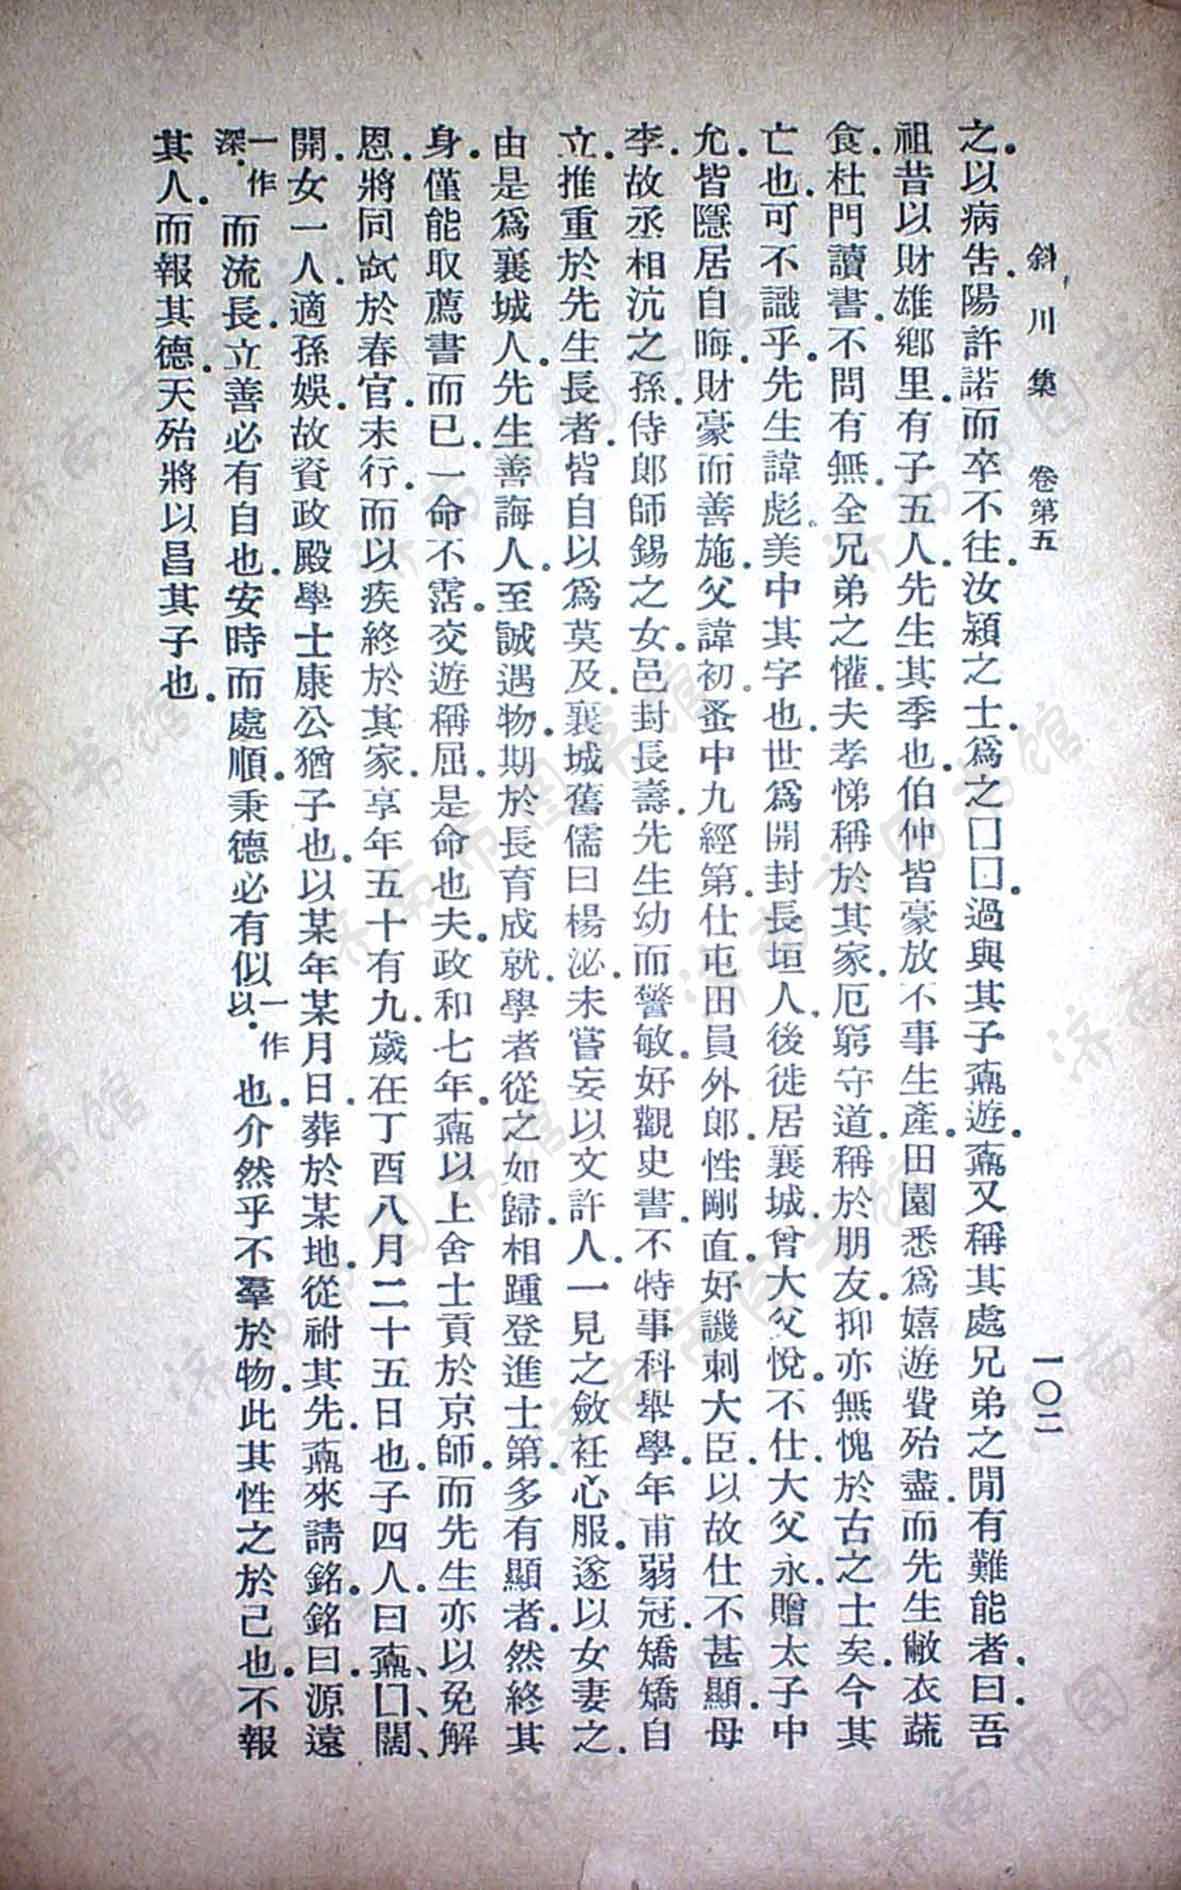 斜川集 卷第五 一〇二
之。以病告。陽許諾而卒不往。汝潁之士。爲之囗囗。過與其子鼒遊。鼒又稱其處兄弟之閒有難能者。曰。吾
祖昔以財雄鄉里。有子五人。先生其季也。伯仲皆豪放不事生產。田園悉爲嬉遊費殆盡。而先生敝衣蔬
食。杜門讀書。不問有無。全兄弟之懽。夫孝悌稱於其家。厄窮守道。稱於朋友。抑亦無愧於古之士矣。今其
亡也。可不識乎。先生諱彪。美中其字也。世爲開封長垣人。後徙居襄城。曾大父悅。不仕。大父永。贈太子中
允。皆隱居自晦。財豪而善施。父諱初。蚤中九經第。仕屯田員外郎。性剛直。好譏刺大臣。以故仕不甚顯。母
李。故丞相沆之孫。侍郎師錫之女。邑封長壽。先生幼而警敏。好觀史書。不特事科舉學。年甫弱冠。矯矯自
立。推重於先生長者。皆自以爲莫及。襄城舊儒曰楊泌。未嘗妄以文許人。一見之斂衽心服。遂以女妻之。
由是爲襄城人。先生善誨人。至誠遇物。期於長育成就。學者從之如歸。相踵登進士第。多有顯者。然終其
身。僅能取薦書而已。一命不霑。交遊稱屈。是命也夫。政和七年。鼒以上舍士貢於京師。而先生亦以免解
恩。將同試於春官。未行。而以疾終於其家。享年五十有九。歲在丁酉八月二十五日也。子四人。曰鼒、囗、闊、
開。女一人。適孫娛。故資政殿學士康公猶子也。以某年某月日。葬於某地。從祔其先。鼒來請銘。銘曰。源遠
一作深。而流長。立善必有自也。安時而處順。秉德必有似一作以。也。介然乎不羣於物。此其性之於己也。不報
其人。而報其德。天殆將以昌其子也。